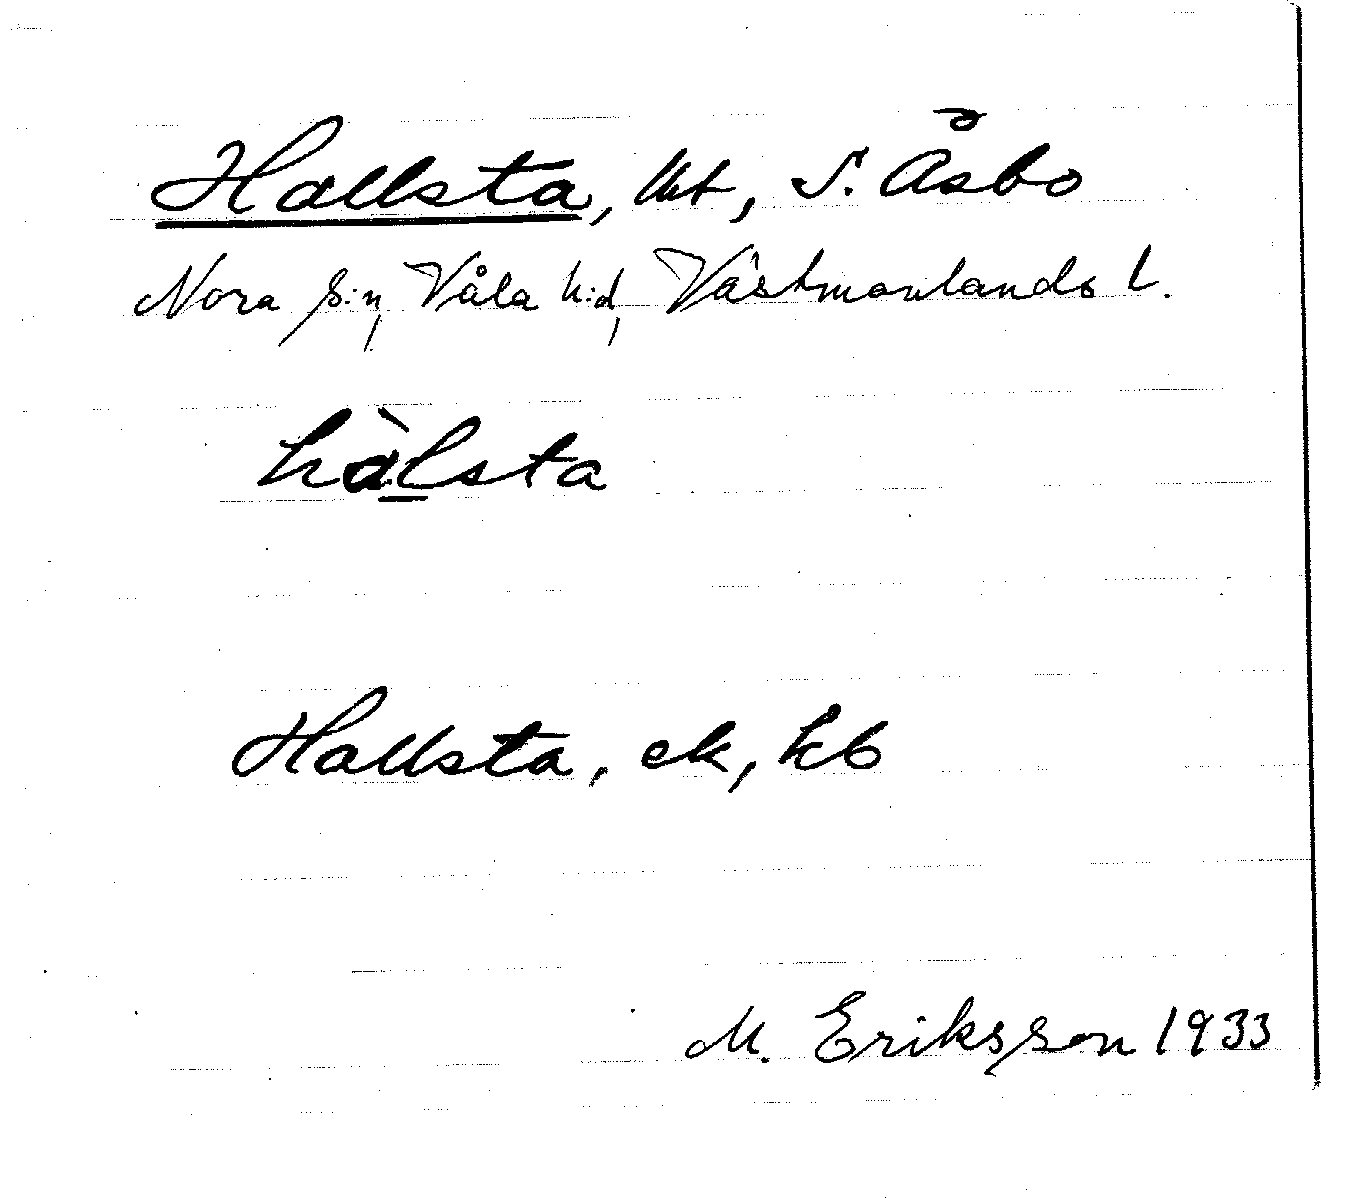 Hallsta, lht, S. Åsbo
Nora s:n, Våla h:d, Västmanlands l.
hàlsta
Hallsta, ek, kb
M. Eriksson 1933